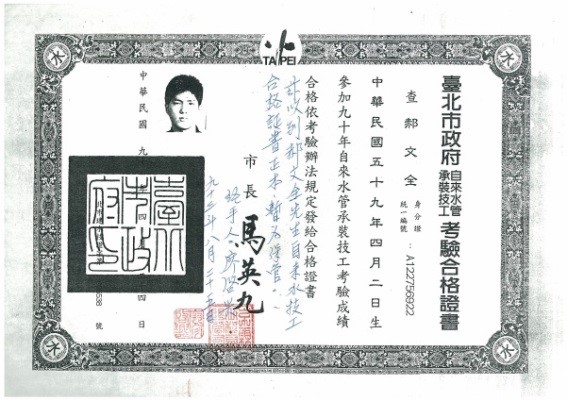 TAIPEI
臺北市政府
自來水管
承裝技工
考驗合格證書
查郝文全
身分證
統一編號
：A122756922
中華民國五十九年四月二日生
參加九十年自來水管承裝技工考驗成績
合格依考驗辦法規定發給合格證書
收到郝文全先生自來水技工
合格證書正本
市長
馬英九
經手人
八月二十五日
中華民國九
四
日
號
臺北市政府印